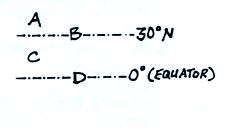 A
B 30°N
C
D 0° (EQUATOR)